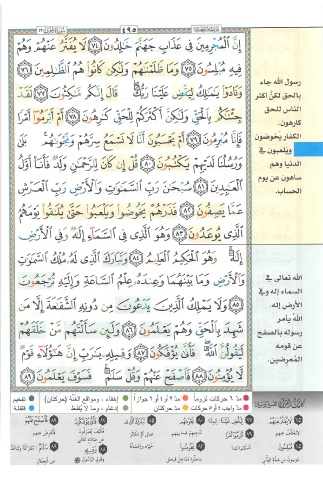 ٤٩٥
إِنَّ ٱلْمُجْرِمِينَ فِى عَذَابِ جَهَنَّمَ خَٰلِدُونَ ٧٤ لَا يُفَتَّرُ عَنْهُمْ وَهُمْ
فِيهِ مُبْلِسُونَ ٧٥ وَمَا ظَلَمْنَٰهُمْ وَلَٰكِن كَانُوا۟ هُمُ ٱلظَّٰلِمِينَ ٧٦
وَنَادَوْا۟ يَٰمَٰلِكُ لِيَقْضِ عَلَيْنَا رَبُّكَ ۖ قَالَ إِنَّكُم مَّٰكِثُونَ ٧٧ لَقَدْ
جِئْنَٰكُم بِٱلْحَقِّ وَلَٰكِنَّ أَكْثَرَكُمْ لِلْحَقِّ كَٰرِهُونَ ٧٨ أَمْ أَبْرَمُوٓا۟ أَمْرًا
فَإِنَّا مُبْرِمُونَ ٧٩ أَمْ يَحْسَبُونَ أَنَّا لَا نَسْمَعُ سِرَّهُمْ وَنَجْوَىٰهُم ۚ بَلَىٰ
وَرُسُلُنَا لَدَيْهِمْ يَكْتُبُونَ ٨٠ قُلْ إِن كَانَ لِلرَّحْمَٰنِ وَلَدٌ فَأَنَا۠ أَوَّلُ
ٱلْعَٰبِدِينَ ٨١ سُبْحَٰنَ رَبِّ ٱلسَّمَٰوَٰتِ وَٱلْأَرْضِ رَبِّ ٱلْعَرْشِ
عَمَّا يَصِفُونَ ٨٢ فَذَرْهُمْ يَخُوضُوا۟ وَيَلْعَبُوا۟ حَتَّىٰ يُلَٰقُوا۟ يَوْمَهُمُ
ٱلَّذِى يُوعَدُونَ ٨٣ وَهُوَ ٱلَّذِى فِى ٱلسَّمَآءِ إِلَٰهٌ وَفِى ٱلْأَرْضِ
إِلَٰهٌ ۚ وَهُوَ ٱلْحَكِيمُ ٱلْعَلِيمُ ٨٤ وَتَبَارَكَ ٱلَّذِى لَهُۥ مُلْكُ ٱلسَّمَٰوَٰتِ
وَٱلْأَرْضِ وَمَا بَيْنَهُمَا وَعِندَهُۥ عِلْمُ ٱلسَّاعَةِ وَإِلَيْهِ تُرْجَعُونَ
٨٥ وَلَا يَمْلِكُ ٱلَّذِينَ يَدْعُونَ مِن دُونِهِ ٱلشَّفَٰعَةَ إِلَّا مَن
شَهِدَ بِٱلْحَقِّ وَهُمْ يَعْلَمُونَ ٨٦ وَلَئِن سَأَلْتَهُم مَّنْ خَلَقَهُمْ
لَيَقُولُنَّ ٱللَّهُ ۖ فَأَنَّىٰ يُؤْفَكُونَ ٨٧ وَقِيلِهِۦ يَٰرَبِّ إِنَّ هَٰٓؤُلَآءِ قَوْمٌ
لَّا يُؤْمِنُونَ ٨٨ فَٱصْفَحْ عَنْهُمْ وَقُلْ سَلَٰمٌ ۚ فَسَوْفَ يَعْلَمُونَ ٨٩
رسول الله جاء
بالحق لكن أكثر
الناس للحق
كارهون.
الكفار يخوضون
ويلعبون في
الدنيا وهم
ساهون عن يوم
الحساب.
الله تعالى في
السماء إله وفي
الأرض إله.
الله يأمر
رسوله بالصفح
عن قومه
المعرضين.
مد ٦ حركات لزوماً
مد ٢ أو ٤ أو ٦ جوازاً
إخفاء، ومواقع الغنة (حركتان)
تفخيم
مد واجب ٤ أو ٥ حركات
مد حركتان
إدغام، وما لا يلفظ
قلقلة